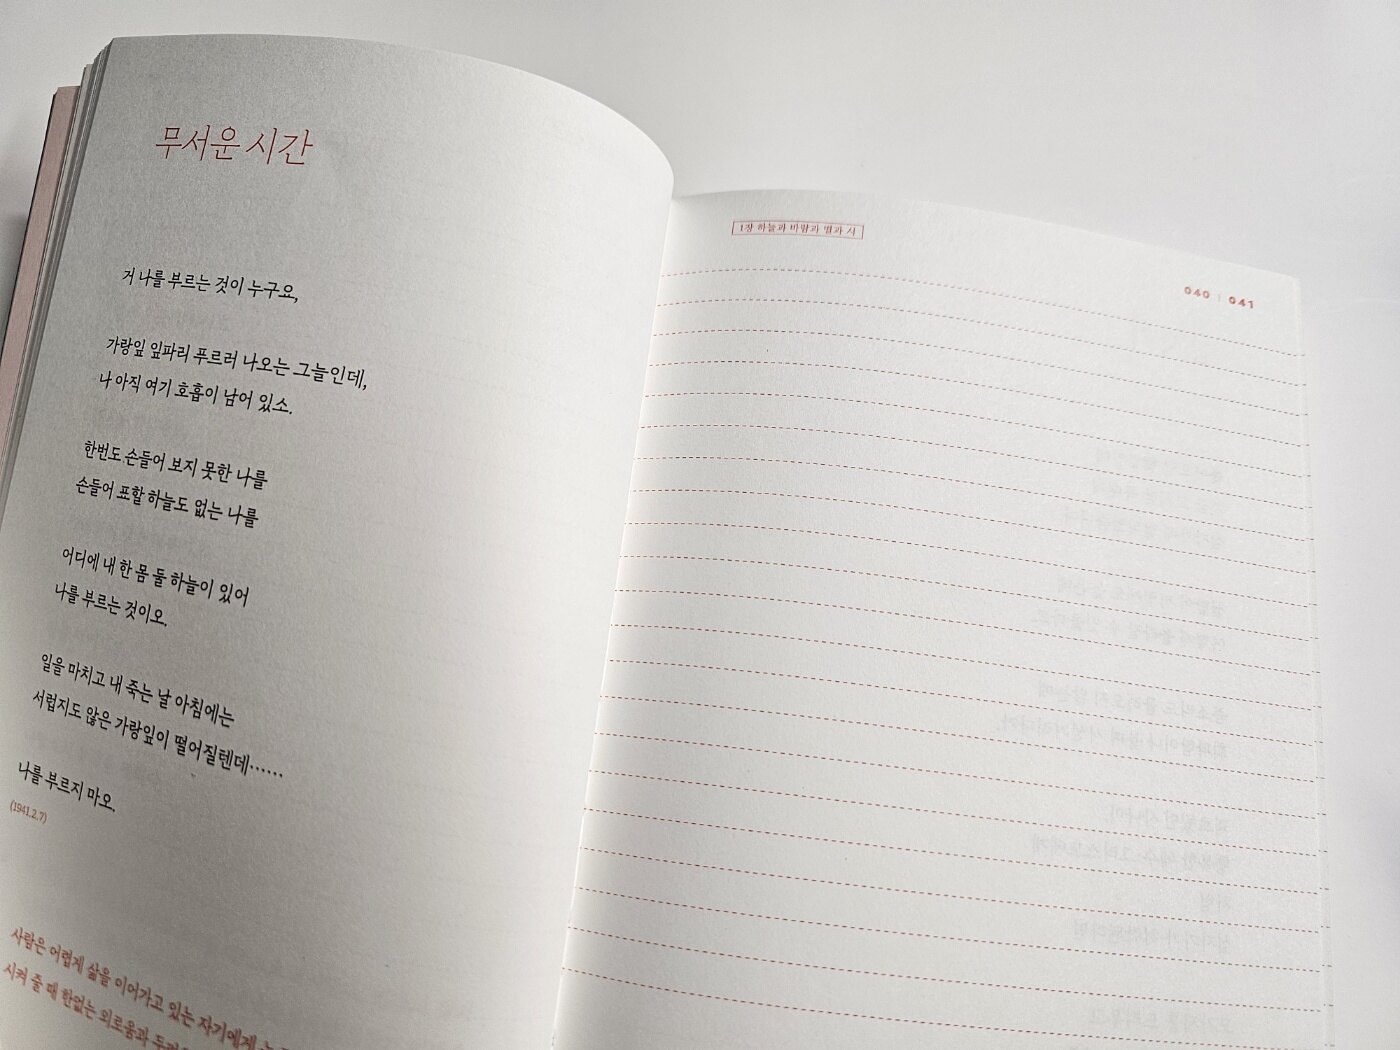 무서운 시간
거 나를 부르는 것이 누구요,
가랑잎 잎파리 푸르러 나오는 그늘인데,
나 아직 여기 호흡이 남어 있소.
한번도 손들어 보지 못한 나를
손들어 표할 하늘도 없는 나를
어디에 내 한 몸 둘 하늘이 있어
나를 부르는 것이오.
일을 마치고 내 죽는 날 아침에는
서럽지도 않은 가랑잎이 떨어질텐데……
나를 부르지 마오.
(1941.2.7)
사람은 어렵게 삶을 이어가고 있는 자기에게
시켜 줄 때 한없는 외로움과
1장 하늘과 바람과 별과 시
040 | 041